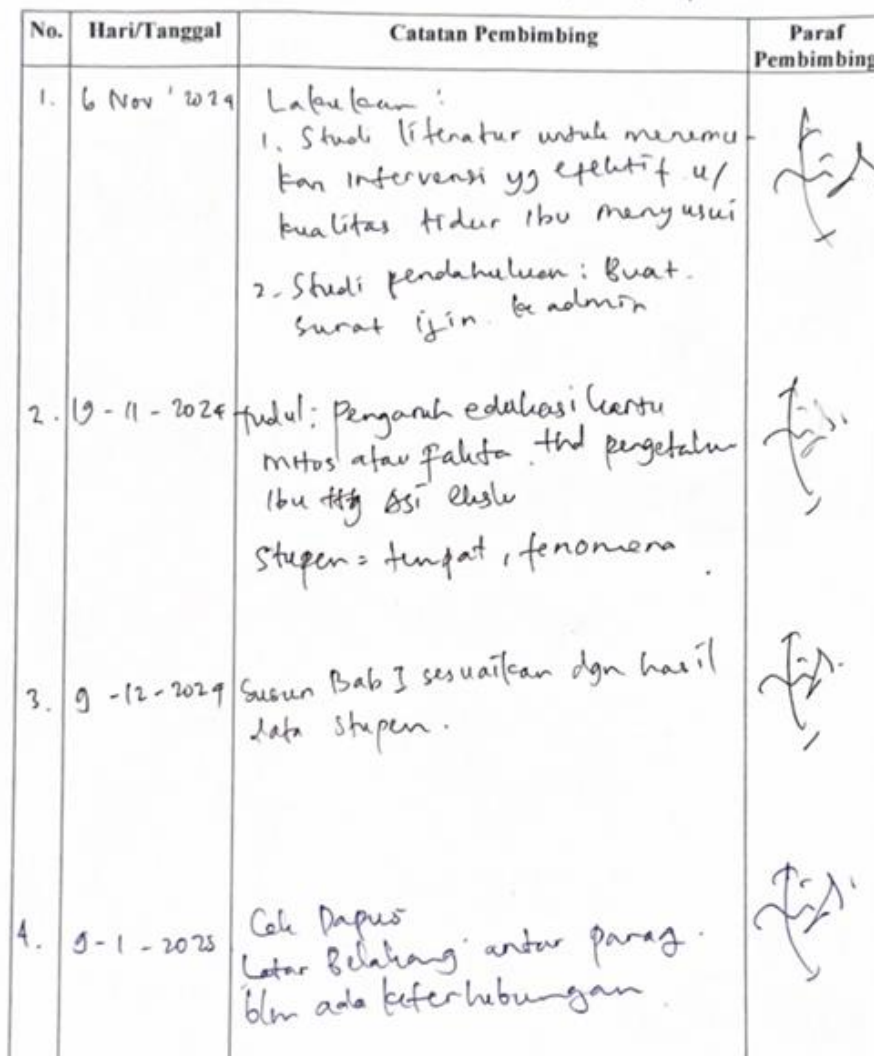 No. Hari/Tanggal Catatan Pembimbing Paraf Pembimbing
1. 6 Nov ' 2024 Lakukan :
1. Studi literatur untuk menemu-
kan intervensi yg efektif u/
kualitas tidur ibu menyusui
2. Studi pendahuluan : Buat
surat ijin ke admin
2. 19 - 11 - 2024 Judul : Pengaruh edukasi kartu
mitos atau fakta thd pengetahu
ibu ttg ASI eksku
Stupen = tempat, fenomena
3. 9 - 12 - 2024 Susun Bab I sesuaikan dgn hasil
data stupen.
4. 9 - 1 - 2025 Cek Dapus
Latar Belakang antar parag.
blm ada keterhubungan